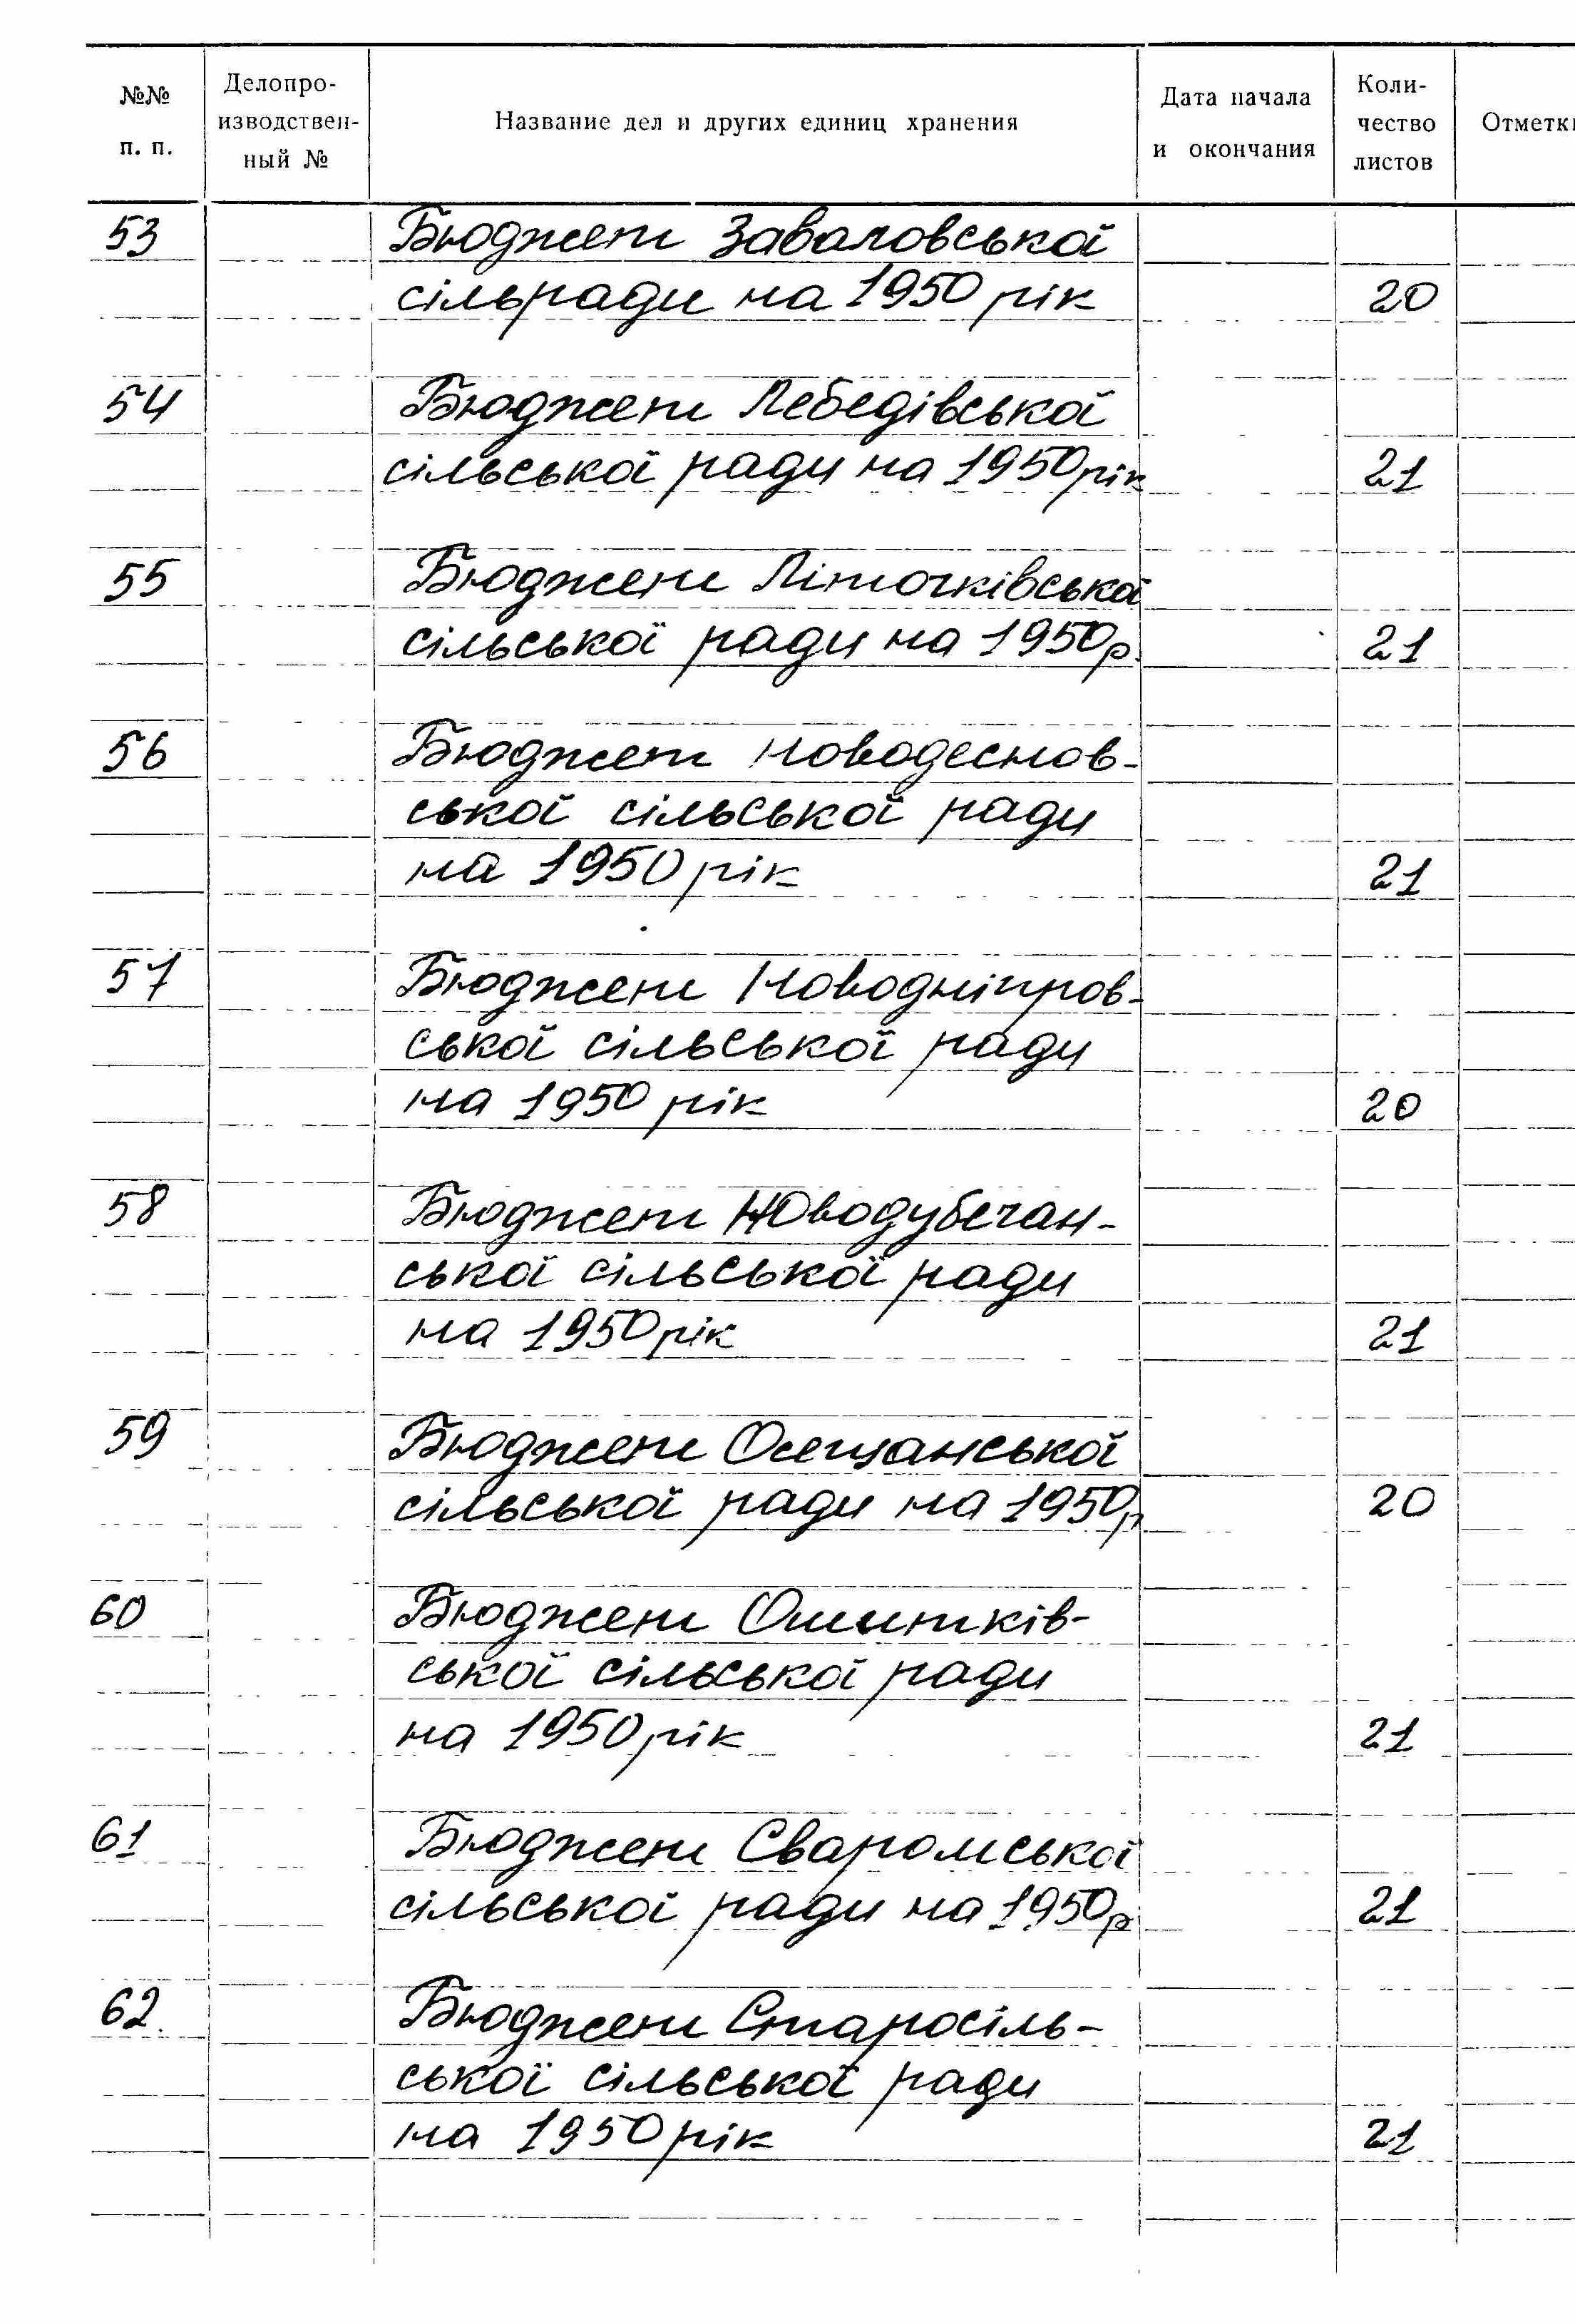 №№ п. п.
Делопро-
изводствен-
ный №
Название дел и других единиц хранения
Дата начала
и окончания
Коли-
чество
листов
Отметки
53 Бюджет Заваловської
сільради на 1950 рік 20
54 Бюджет Лебедівської
сільської ради на 1950 рік 21
55 Бюджет Літочківської
сільської ради на 1950 р. 21
56 Бюджет Новодеснов-
ської сільської ради
на 1950 рік 21
57 Бюджет Новодніпров-
ської сільської ради
на 1950 рік 20
58 Бюджет Новодубечан-
ської сільської ради
на 1950 рік 21
59 Бюджет Осещанської
сільської ради на 1950 р 20
60 Бюджет Ошитків-
ської сільської ради
на 1950 рік 21
61 Бюджет Сваромської
сільської ради на 1950 р 21
62. Бюджет Старосіль-
ської сільської ради
на 1950 рік 21